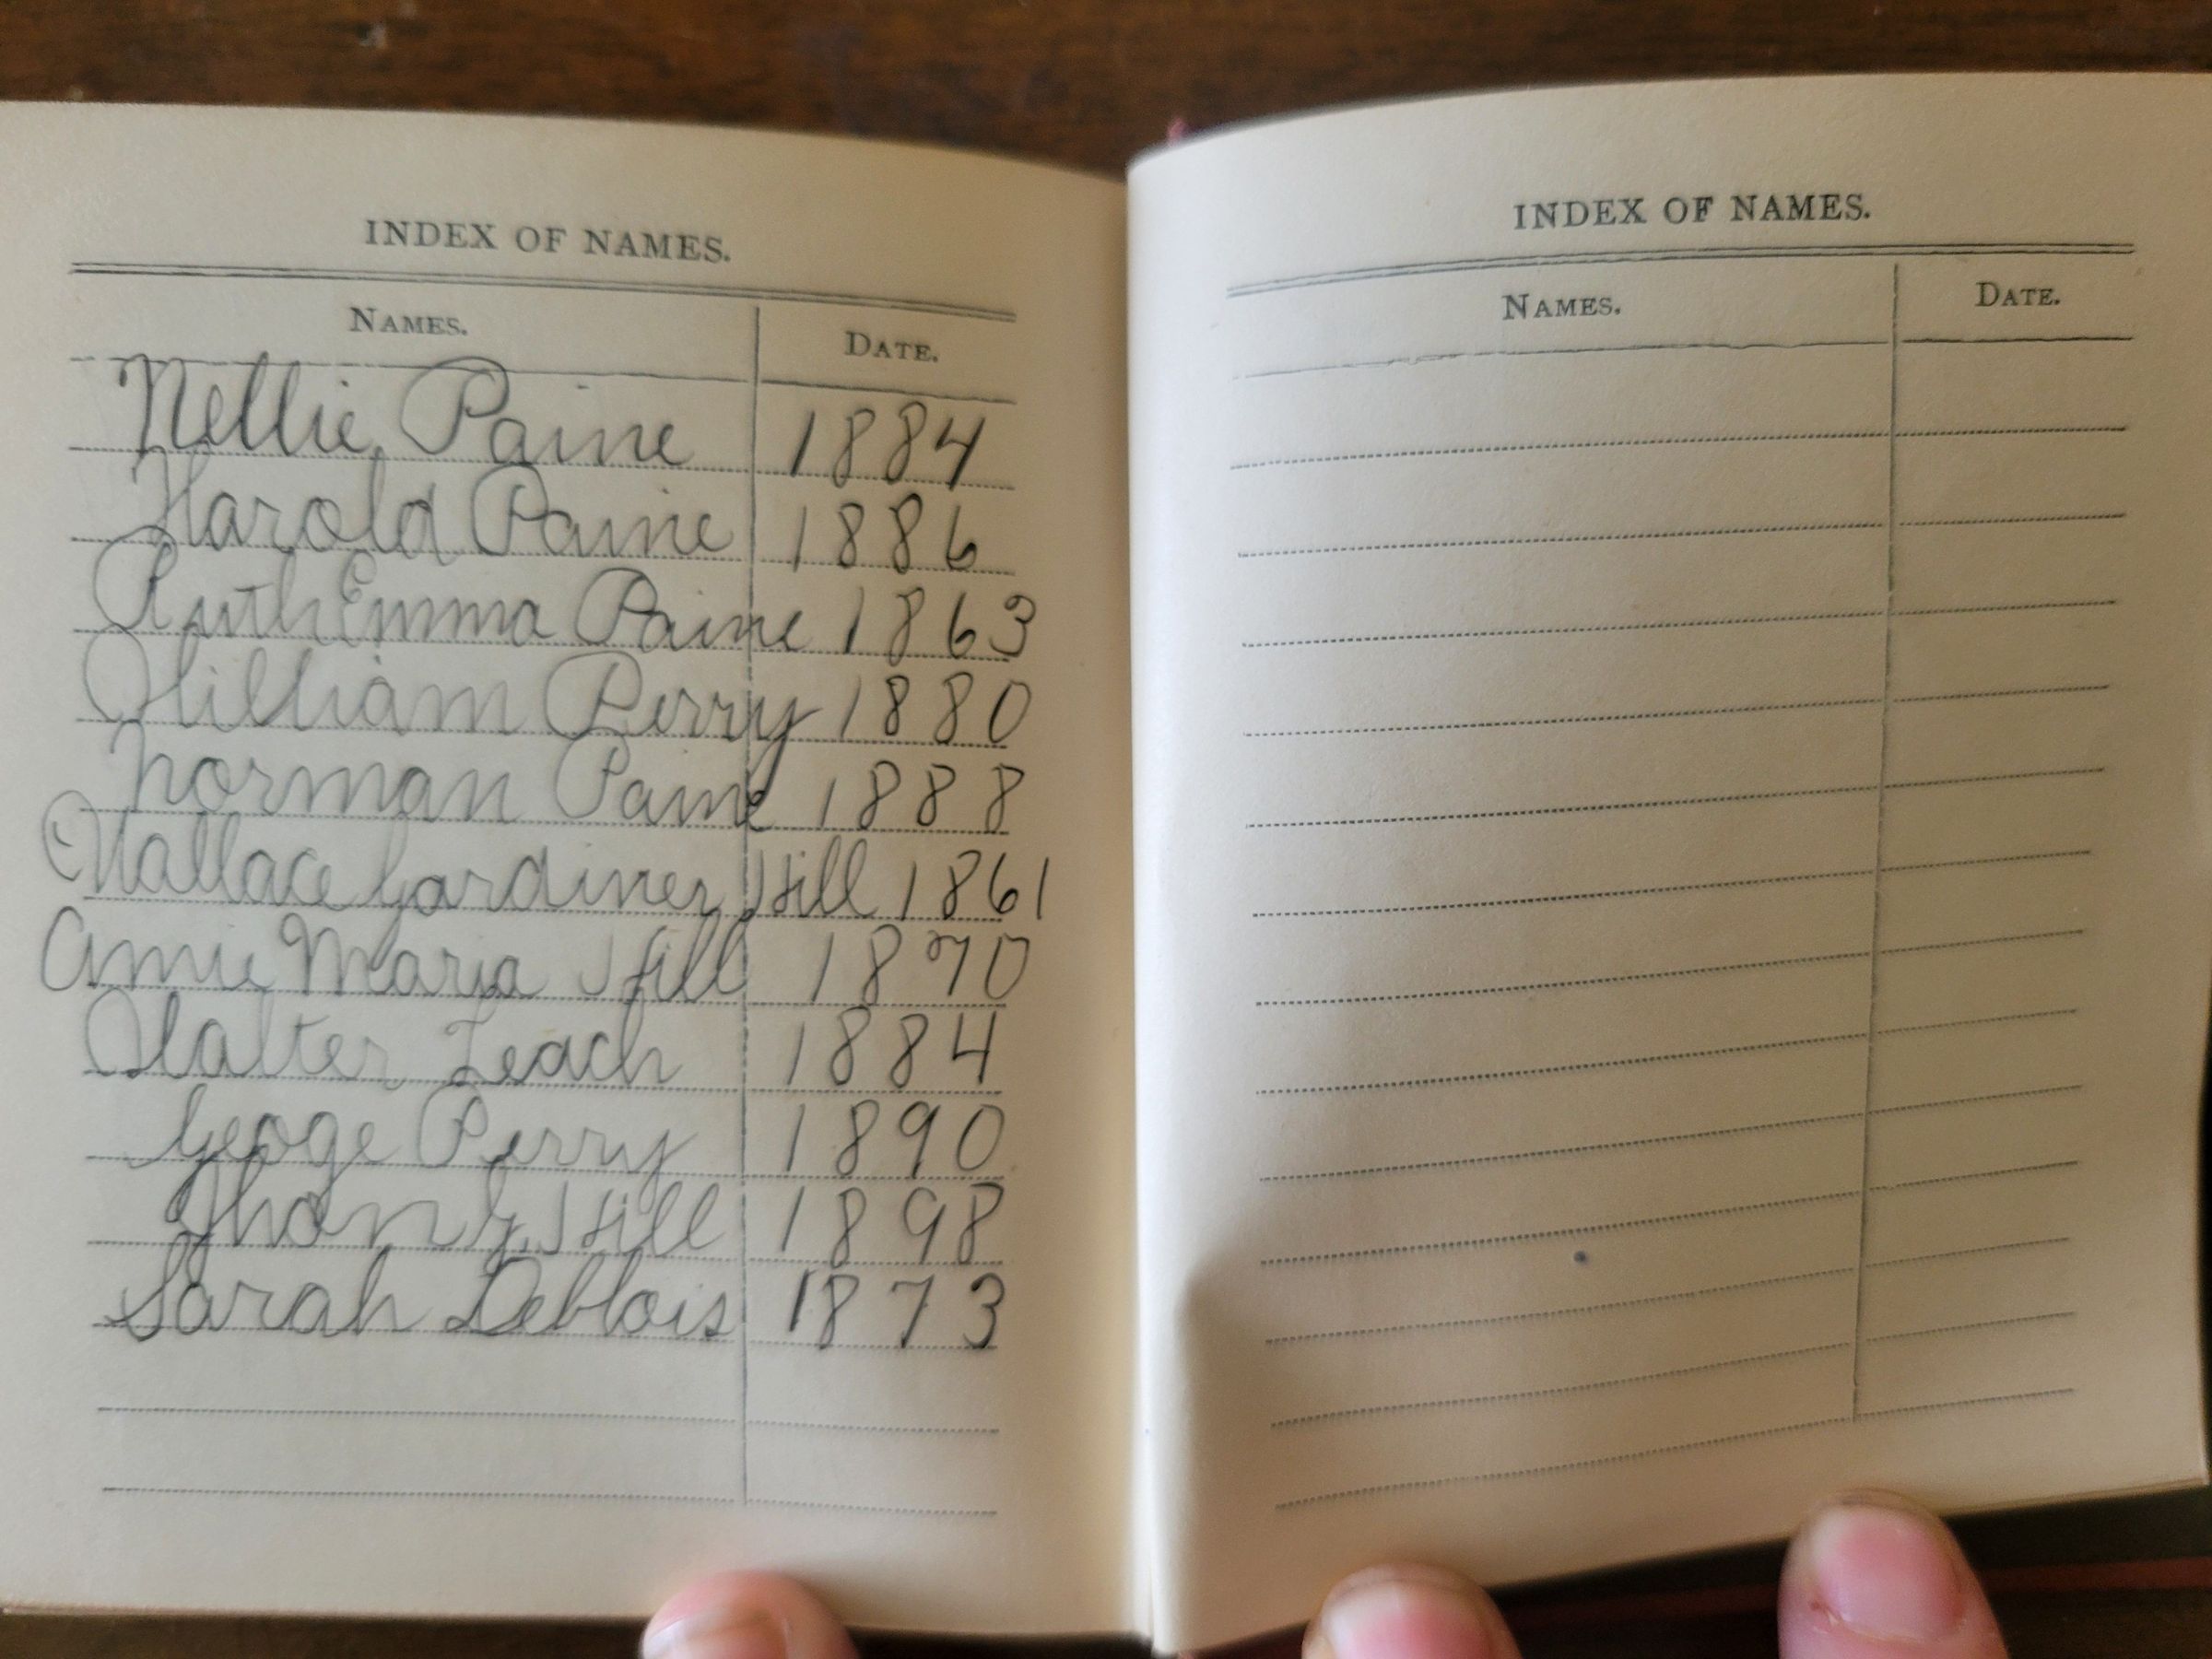 INDEX OF NAMES.
NAMES. DATE.
Nellie Paine 1884
Harold Paine 1886
Ruth Emma Paine 1863
William Perry 1880
Norman Paine 1888
Wallace Gardiner Hill 1861
Annie Maria Hill 1870
Walter Leach 1884
Geoge Perry 1890
Jhon G. Hill 1898
Sarah Deblois 1873
INDEX OF NAMES.
NAMES. DATE.